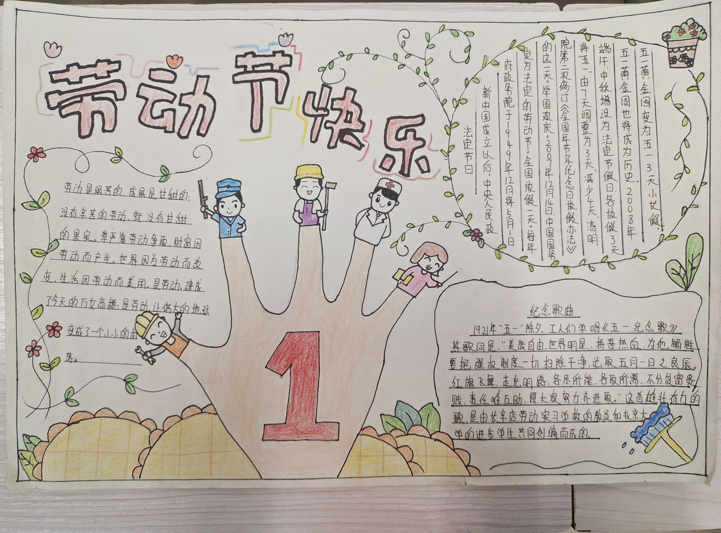 劳动节快乐
劳动是艰苦的,成果是甘甜的;
没有辛苦的劳动,就没有甘甜
的果实。尊严靠劳动争取,财富因
劳动而产生,世界因为劳动而改
变,生活因劳动而美丽。是劳动,建成
了今天的万丈高楼;是劳动,让偌大的地球
变成了一个小小的
法定节日
新中国成立以后,中央人民政
府政务院于1949年12月将5月1日
定为法定的劳动节,全国放假一天。每年
的这一天,举国欢庆。2007年12月14日中国国务
院第二次修订《全国年节及纪念日放假办法》
将五一由7天调整为3天,减少4天,清明
端午、中秋增设为法定节假日,各放假3天
五一黄金周也将成为历史,2008年
五一黄金周变为五一3天小长假
1
纪念歌曲
1921年"五一"除夕,工人们学唱《五一纪念歌》
其歌词是:"美哉自由,世界明星,拼吾热血,为他牺牲,
要把强权制度一切扫除干净,记取五月一日之良辰。
红旗飞舞,走光明路,各尽所能,各取所需,不分贫富贵
贱,责任唯互助,愿大家努力齐进取。"这首雄壮有力的
歌,是由长辛店劳动实习学校的教员和北京大
学的进步学生共同创编而成的。